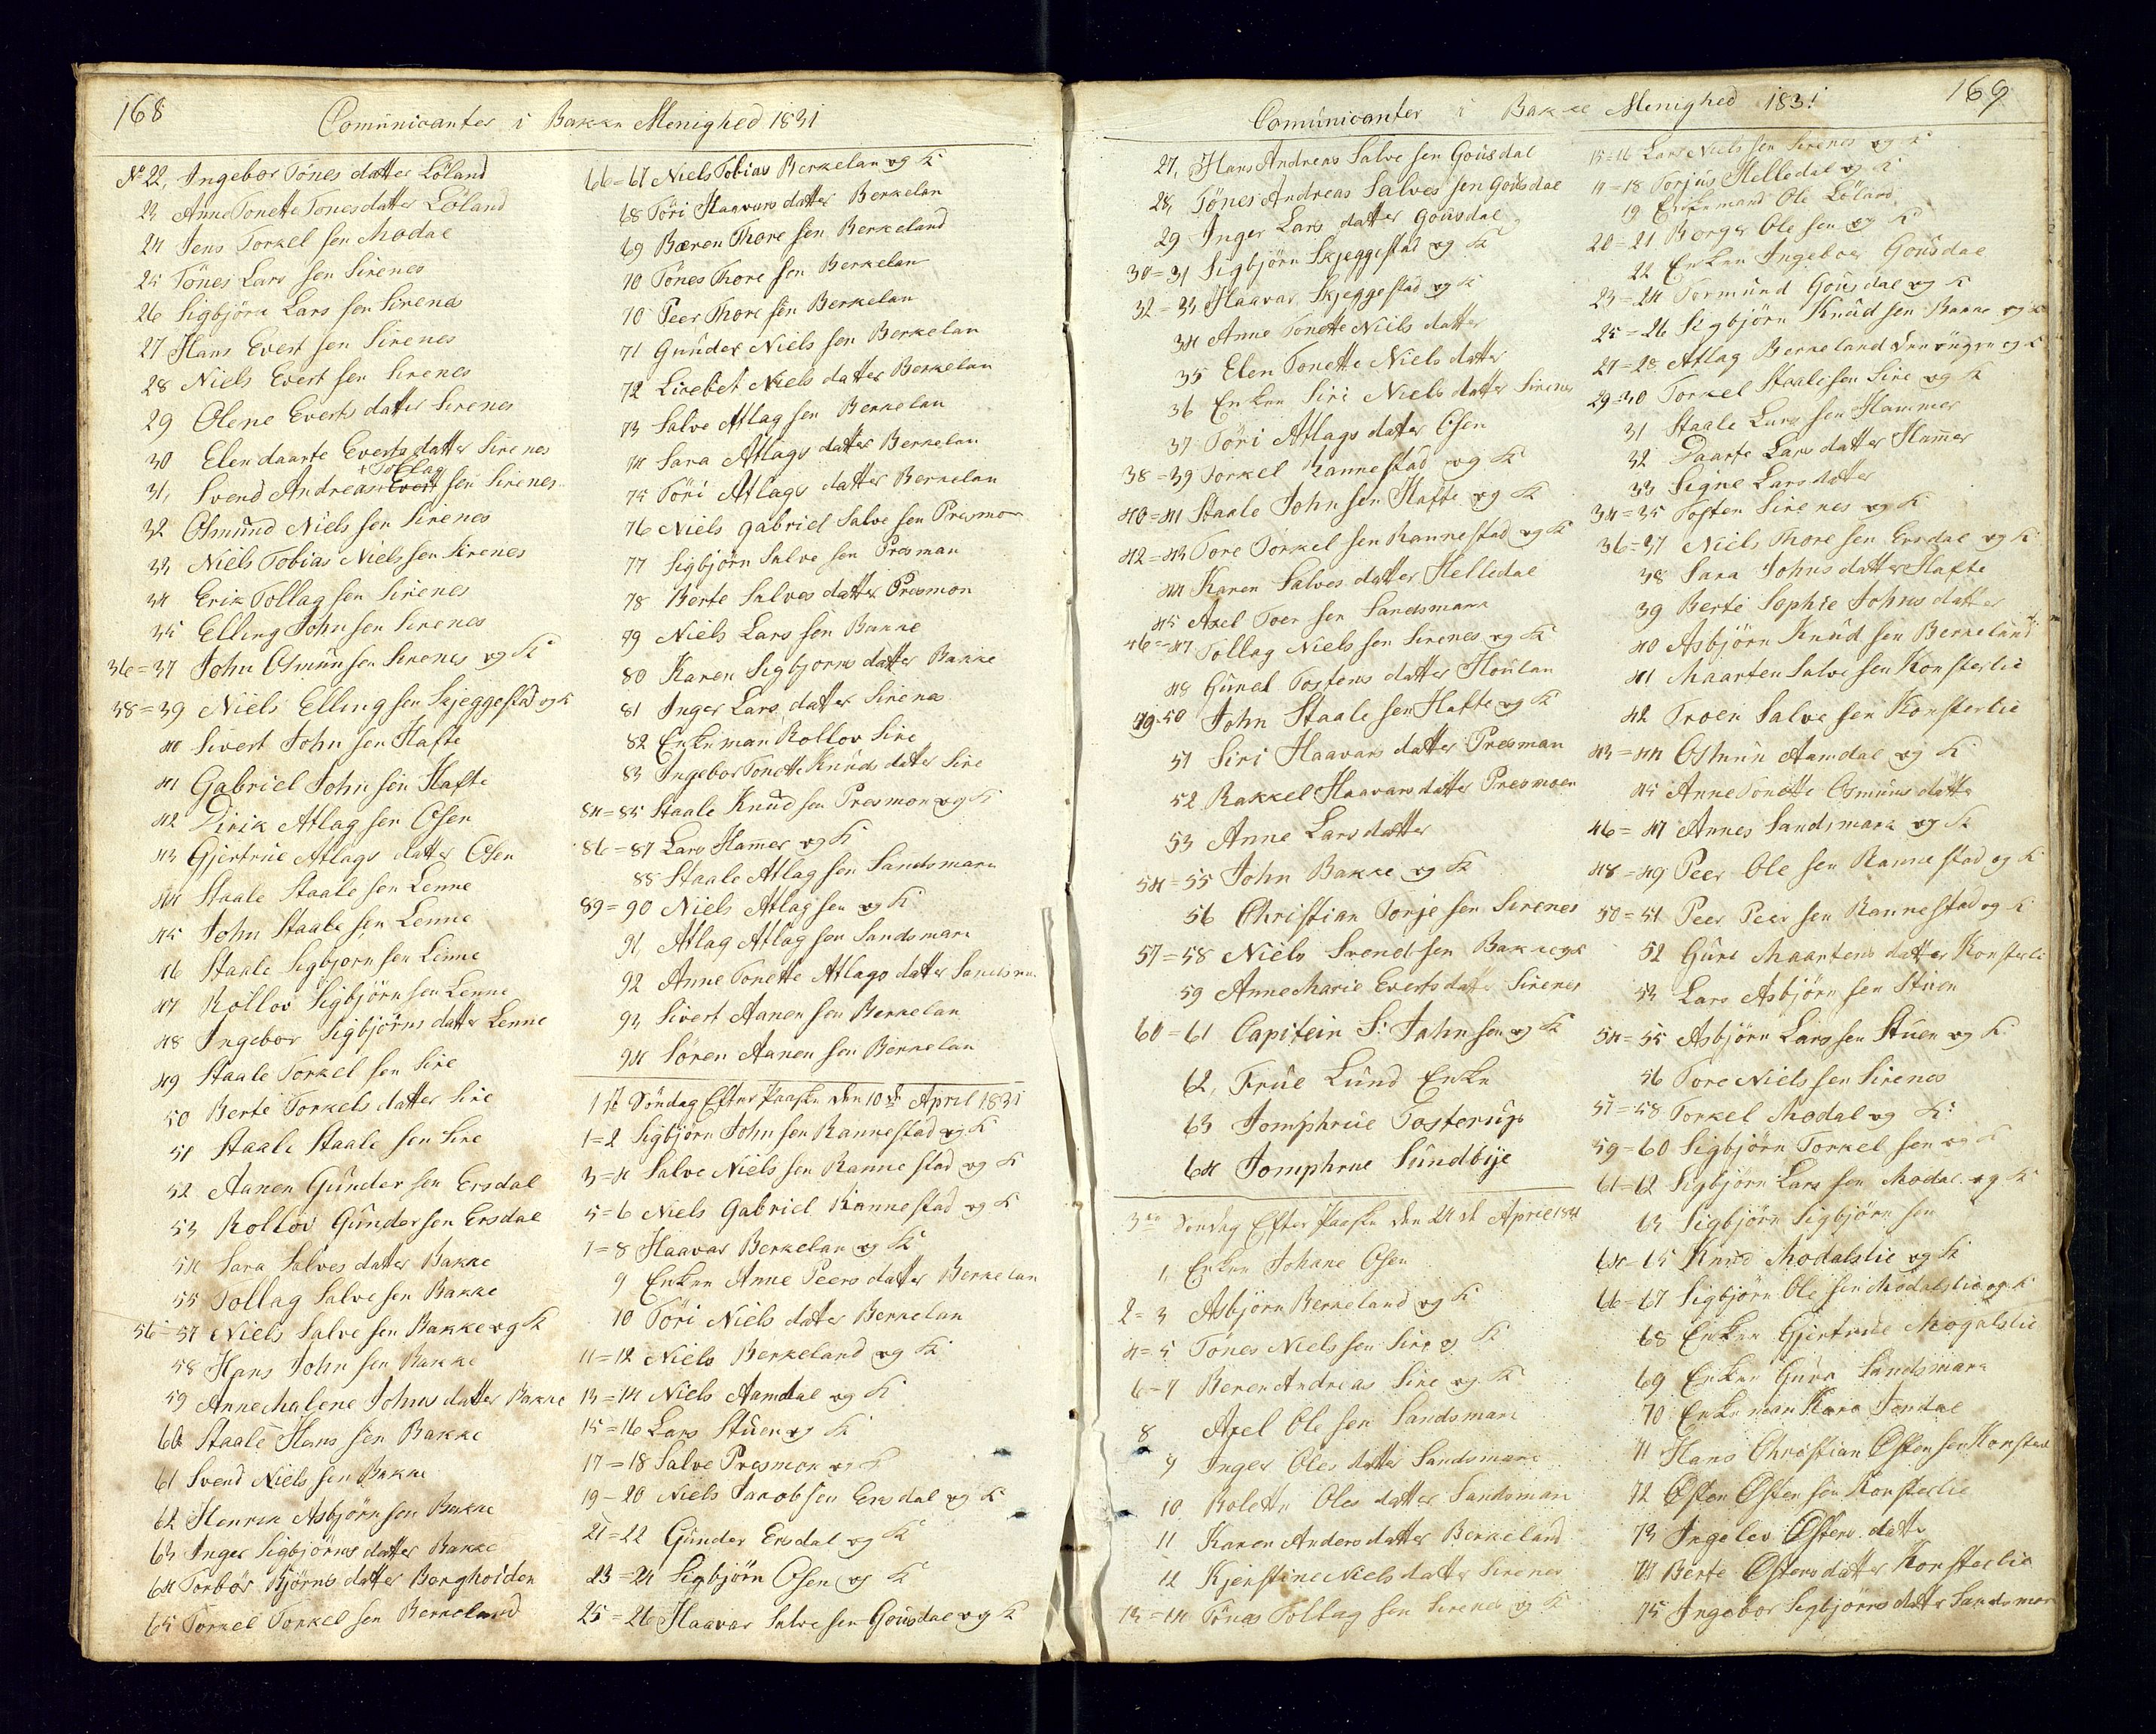 168
Comúnicanter i Bakke Menighed 1831
No 22, Ingebor Tönes datter Löland
23 Anne Tonette Tones datter Löland
24 Jens Torkel sen Modal
25 Tönes Lars sen Sirenes
26 Sigbjörn Lars sen Sirenes
27 Hans Evert sen Sirenes
28 Niels Evert sen Sirenes
29 Olene Everts datter Sirenes
30 Elen daarte Everts datter Sirenes
Tollag
31, Svend Andreas Evert sen Sirenes
32 Osmúnd Niels sen Sirenes
33 Niels Tobias Niels sen Sirenes
34 Erik Tollag sen Sirenes
35 Elling John sen Sirenes
36=37 John Osmún sen Sirenes og K
38=39 Niels Elling sen Skjeggestad og K
40 Sivert John sen Hafte
41 Gabriel John sen Hafte
42 Dirik Atlag sen Osen
43 Gjertrue Atlags datter Osen
44 Staale Staale sen Lenne
45 John Staale sen Lenne
46 Staale Sigbjorn sen Linne
47 Rollov Sigbjörn sen Lenne
48 Ingebor Sigbjörns datter Lenne
49 Staale Torkel sen Sire
50 Berte Torkels datter Sire
51 Staale Staale sen Sire
52 Aanen Gúnder sen Ersdal
53 Rollov Gúnder sen Ersdal
54 Sara Salves datter Bakke
55 Tollag Salve sen Bakke
56=57 Niels Salve sen Bakke og K
58 Hans John sen Bakke
59 Anne Malene Johns datter Bakke
60 Staale Hans sen Bakke
61 Svend Niels sen Bakke
62 Henrik Asbjörn sen Bakke
63 Inger Sigbjörns datter Bakke
64 Torbör Björns datter Borgholden
65 Torkel Torkel sen Berkeland
66=67 Niels Tobias Berkelan og K
68 Töri Haavars datter Berkelan
69 Bæren Thore sen Berkeland
70 Tönes Thore sen Berkelan
70 Peer Thore sen Berkelan
71 Gúnder Niels sen Berkelan
72 Lisebet Niels datter Berkelan
73 Salve Atlag sen Berkelan
74 Sara Atlags datter Berkelan
75 Töri Atlags datter Berkelan
76 Niels gabriel Salve sen Presmon
77 Sigbjörn Salve sen Presman
78 Berte Salves datter Presmon
79 Niels Lars sen Bakke
80 Karen Sigbjorns datter Bakke
81 Inger Lars datter Sirenes
82 Enkeman Rollov Sire
83 Ingebor Tonette Knúds dater Sire
84=85 Staale Knúd sen Presmon og K
86=87 Lars Hamer og K
88 Staale Atlag sen Sandsmark
89=90 Niels Atlag sen og K
91 Atlag Atlag sen Sandsmark
92 Anne Tonette Atlags datter Sandsmar
93 Sivert Aanen sen Berkelan
94 Sören Aanen sen Berkelan
1ste Söndag Efter Paaske den 10de April 1831
1=2 Sigbjörn John sen Rannestad og K
3=4 Salve Niels sen Rannestad og K
5=6 Niels Gabriel Rannestad og K
7=8 Haavar Berkelan og K
9 Enken Anne Peers datter Berkelan
10 Töri Niels dater Berkelan
11=12 Niels Berkeland og K
13=14 Niels Aamdal og K
15=16 Lars Stúen og K
17=18 Salve Presmon og K
19=20 Niels Jakob sen Ersdal og K
21=22 Gúnder Ersdal og K
23=24 Sigbjörn Osen og K
25=26 Haavar Salve sen Goúsdal og K
169
Comúnicanter i Bakke Menighed 1831
27, Hans Andreas Salve sen Goúsdal
28, Tönes Andreas Salves sen Goúsdal
29 Inger Lars datter Goúsdal
30=31 Sigbjörn Skjeggestad og K
32=33 Haavar Skjeggestad og K
34 Anne Tonette Niels datter
35 Elen Tonette Niels datter
36 Enken Siri Niels datter Sirenes
37 Töri Atlags datter Osen
38=39 Torkel Rannestad og K
40=41 Staale John sen Hafte og K
42=43 Tore Torkel sen Rannestad og K
44 Karen Salves datter Helledal
45 Axel Toer sen Sandsmark
46=47 Tollag Niels sen Sirenes og K
48 Gúnel Tostens datter Hoúlan
49=50 John Staale sen Hafte og K
51 Siri Haavars datter Presman
52 Rakkel Haavars datter Presmoen
53 Anne Lars datter
54=55 John Bakke og K
56 Christian Torje sen Sirenes
57=58 Niels Svend sen Bakke og K
59 Anne Marie Everts datter Sirenes
60=61 Capitein S: Jahn sen og K
62, Frúe Lúnd Enke
63 Jomphrúe Tosterúp
64 Jomphrue Súndbÿe
3die Söndag Efter Paaske den 24de April 1831
1, Enken Johane Osen
2=3 Asbjörn Berkeland og K
4=5 Tönes Niels sen Sire og K
6=7 Beren Andreas Sire og K
8 Axel Ole sen Sandsmark
9 Inger Oles datter Sandsmark
10 Bolette Oles datter Sandsmark
11 Karen Anders datter Berkeland
12 Kjerstine Niels datter Sirenes
13=14 Tönes Tollag sen Sirenes og K
15=16 Lars Niels sen Sirenes og K
17=18 Torjús Helledal og K
19 Enkemand Ole Löland
20=21 Borger Ole sen og K
22 Enken Ingebor Goúsdal
23=24 Tormúnd Goúsdal og K
25=26 Sigbjörn Knúd sen Bakke og K
27=28 Atlag Berkeland den úngre og K
29=30 Torkel Staale sen Sire og K
31 Staale Lars sen Hammer
32 Daarte Lars datter Hamer
33 Signe Lars datter
34=35 Tosten Sirenes og K
36=37 Niels Thore sen Ersdal og K
38 Sara Johns datter Hafte
39 Berte Sophie Johns datter
40 Asbjörn Knúd sen Berkeland
41 Maarten Salve sen Konsterlie
42 Troen Salve sen Konsterlie
43=44 Osmún Aamdal og K
45 Anne Tonette Osmúns datter
46=47 Annes Sandsmark og K
48=49 Peer Ole sen Rannestad og K
50=51 Peer Peer sen Rannestad og K
52 Gúre Maartens datter Konsterli
53 Lars Asbjörn sen Stúen
54=55 Asbjörn Lars sen Stúen og K
56 Tore Niels sen Sirenes
57=58 Torkel Modal og K:
59=60 Sigbjörn Torkel sen og K
61=62 Sigbjörn Lars sen Modal og K
63 Sigbjörn Sigbjörn sen
64=65 Knúd Modalslie og K
66=67 Sigbjörn Ole sen Modalslie og K
68 Enken Gjertrúe Mogalslie
69 Enken Gúra Sandsmark
70 Enkeman Jondal
71 Hans Christian Osten sen Konsterl
72 Osten Osten sen Konsterlie
73 Ingelev Ostens datte
74 Berte Ostens datter Konsterlie
75 Ingebor Sigbjörns datter Sandsmar